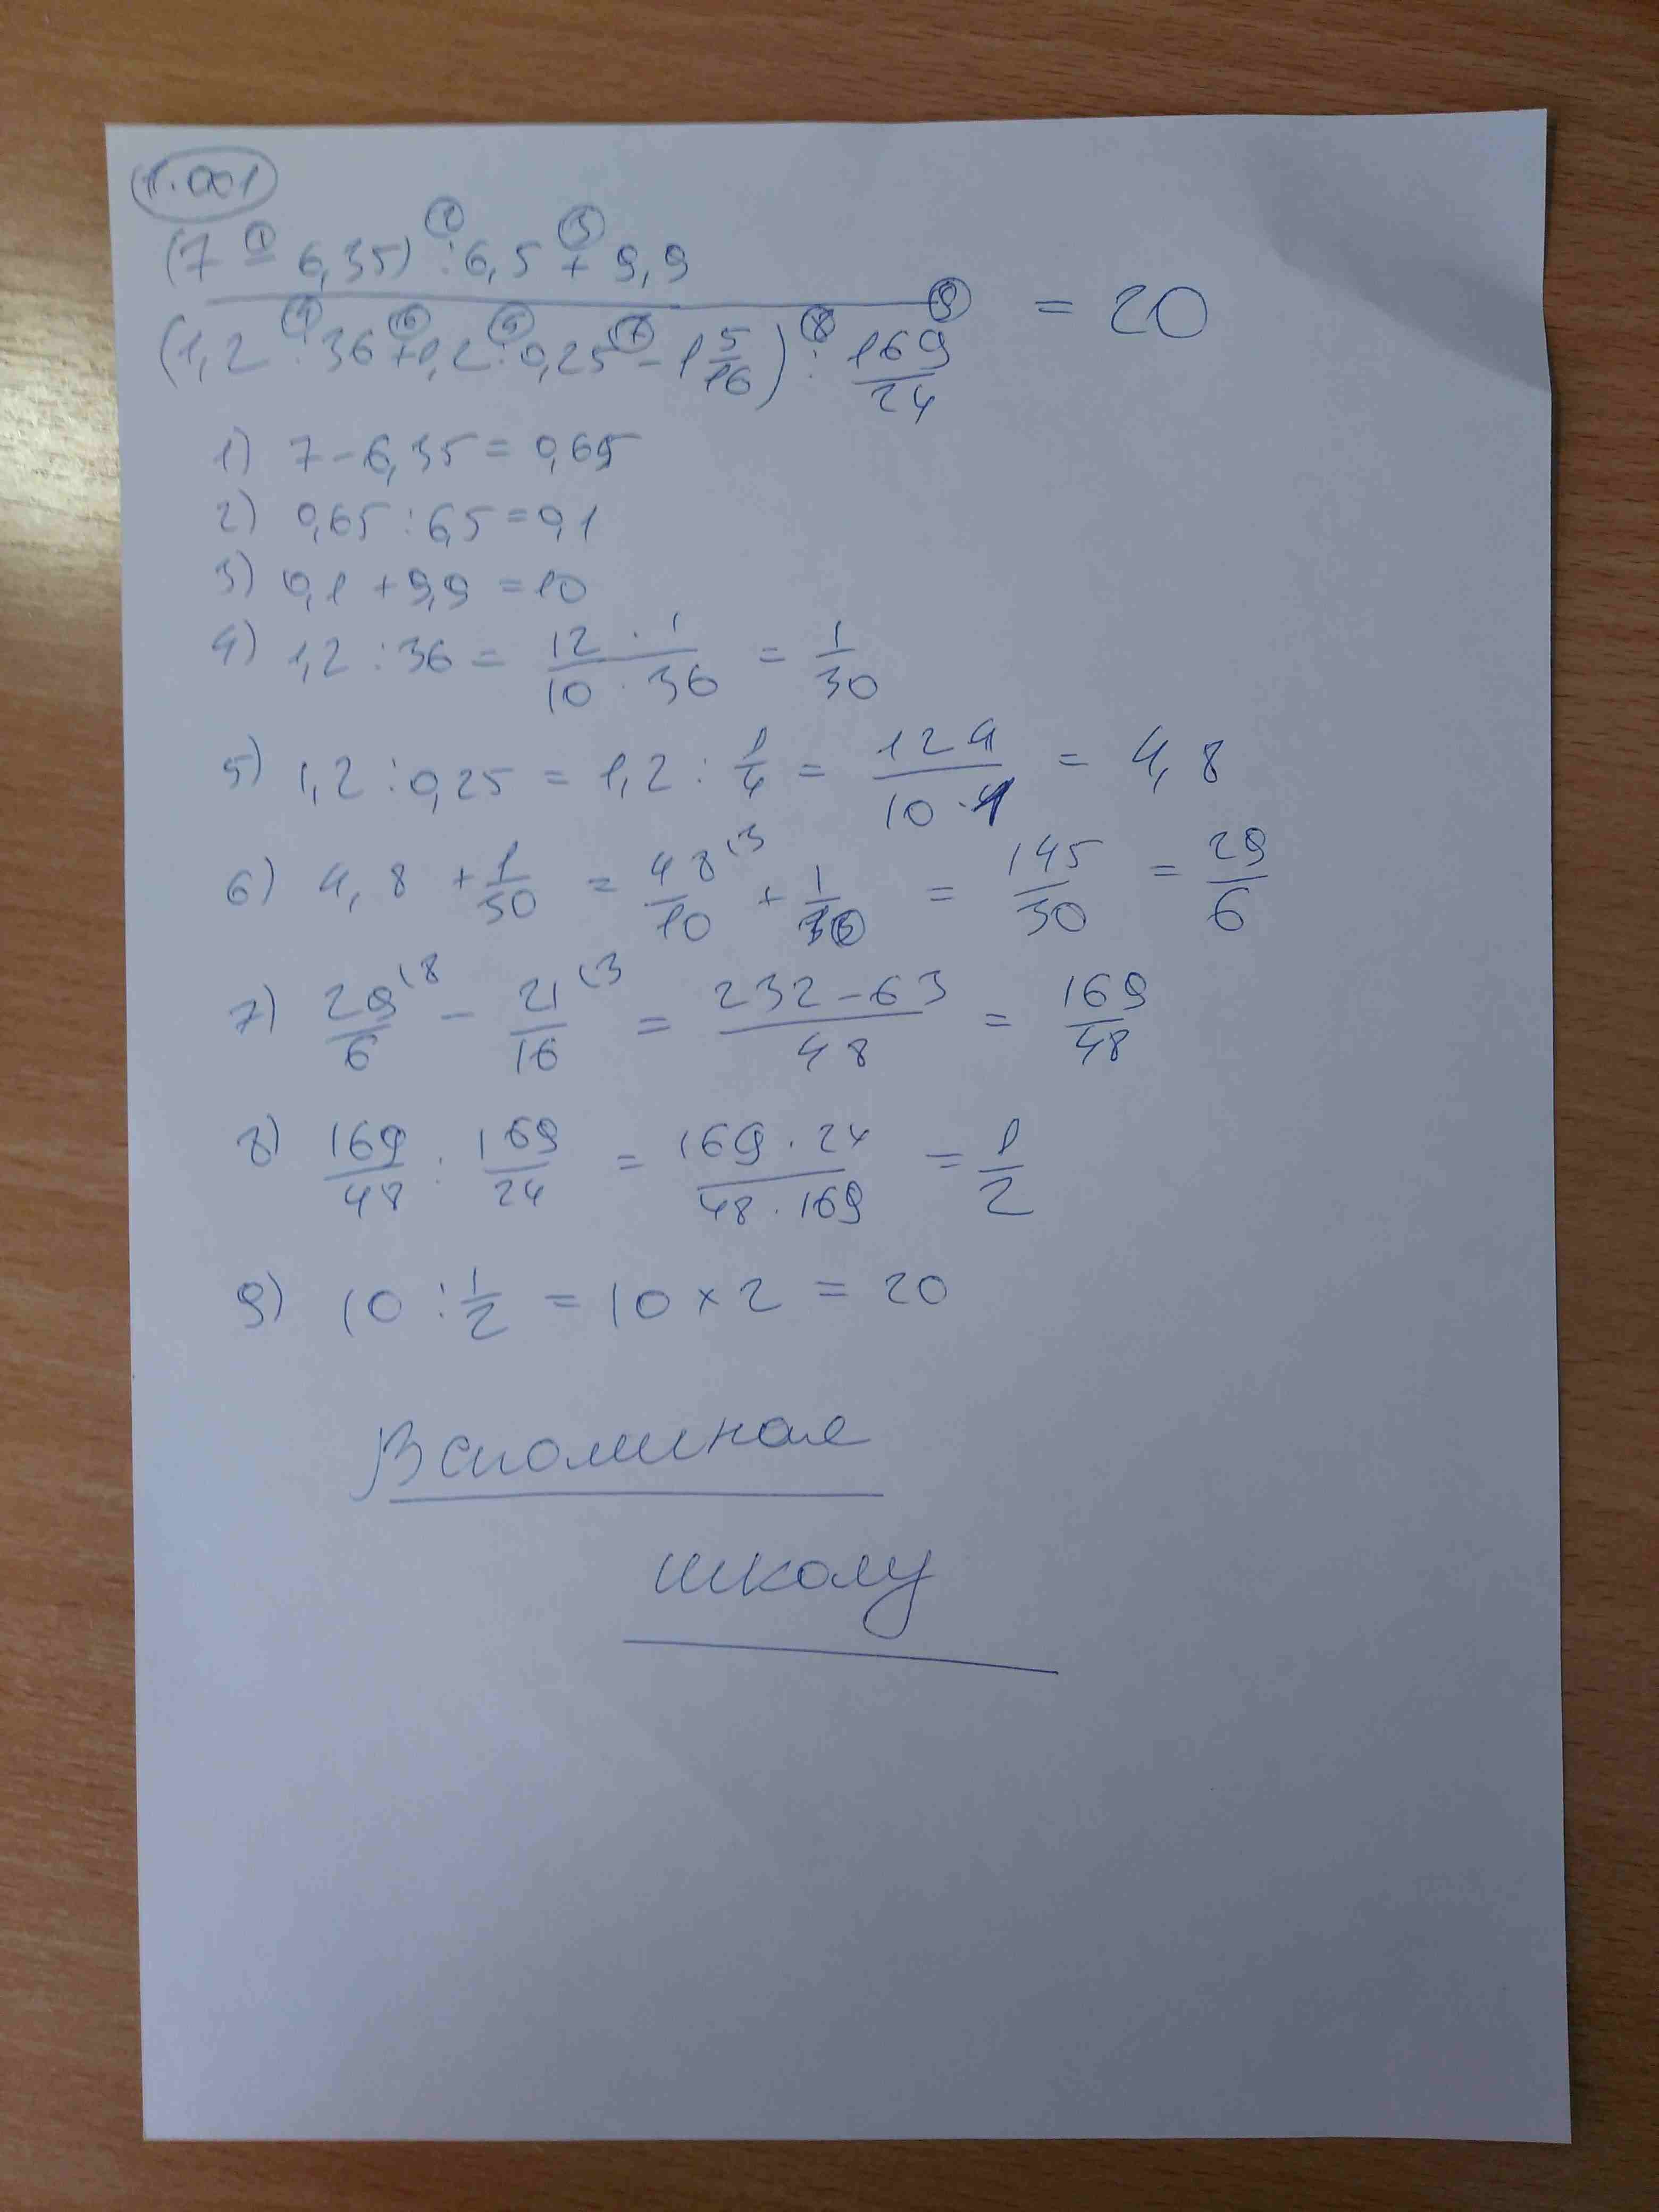 1.001
(7 - 6,35) : 6,5 + 9,9
(1,2 : 36 + 1,2 : 0,25 - 1 5/16) : 169/24 = 20
1) 7 - 6,35 = 0,65
2) 0,65 : 6,5 = 0,1
3) 0,1 + 9,9 = 10
4) 1,2 : 36 = 12 · 1 / 10 · 36 = 1/30
5) 1,2 : 0,25 = 1,2 : 1/4 = 12 4 / 10 · 1 = 4,8
6) 4,8 + 1/30 = 48/10 (3 + 1/30 = 145/30 = 29/6
7) 29/6 (8 - 21/16 (3 = 232 - 63 / 48 = 169/48
8) 169/48 : 169/24 = 169 · 24 / 48 · 169 = 1/2
9) 10 : 1/2 = 10 × 2 = 20
Вспоминая
школу